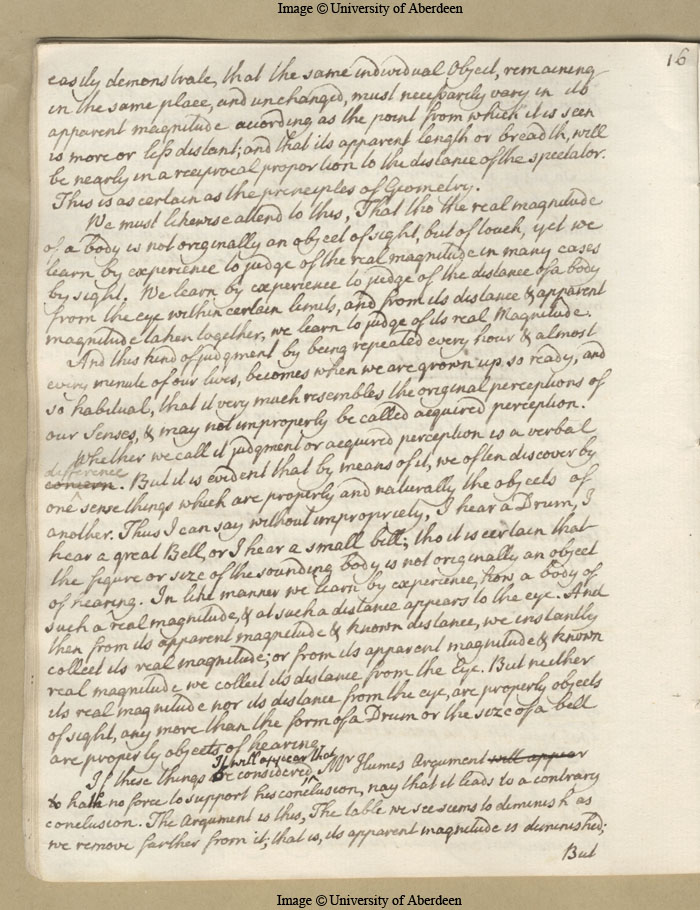 Image © University of Aberdeen
16
easily demonstrate, that the same individual Object, remaining
in the same place, and unchanged, must necessarily vary in its
apparent magnitude according as the point from which it is seen
is more or less distant; and that its apparent length or breadth, will
be nearly in a reciprocal proportion to the distance of the spectator.
This is as certain as the principles of Geometry.
We must likewise attend to this, That tho the real magnitude
of a body is not originally an object of sight, but of touch, yet we
learn by experience to judge of the real magnitude in many cases
by sight. We learn by experience to judge of the distance of a body
from the eye within certain limits, and from its distance & apparent
magnitude taken together, we learn to judge of its real Magnitude.
And this kind of judgment by being repeated every hour & almost
every minute of our lives, becomes when we are grown up so ready, and
so habitual, that it very much resembles the original perceptions of
our Senses, & may not improperly be called acquired perception.
Whether we call it judgment or acquired perception is a verbal
difference
concern. But it is evident that by means of it, we often discover by
one sense things which are properly and naturally the objects of
another. Thus I can say without impropriety, I hear a Drum, I
hear a great Bell, or I hear a small bell; tho it is certain that
the figure or size of the sounding body is not originally an object
of hearing. In like manner we learn by experience, how a body of
such a real magnitude, & at such a distance appears to the eye. And
then from its apparent magnitude & known distance, we instantly
collect its real magnitude; or from its apparent magnitude & known
real magnitude we collect its distance from the Eye. But neither
its real magnitude nor its distance from the eye, are properly objects
of sight, any more than the form of a Drum or the size of a bell
are properly objects of hearing.
It will appear that
If these things be considered, Mr Humes Argument will appear
to hath no force to support his conclusion, nay that it leads to a contrary
conclusion. The Argument is this, The table we see seems to diminish as
we remove farther from it; that is, its apparent magnitude is diminished;
But
Image © University of Aberdeen